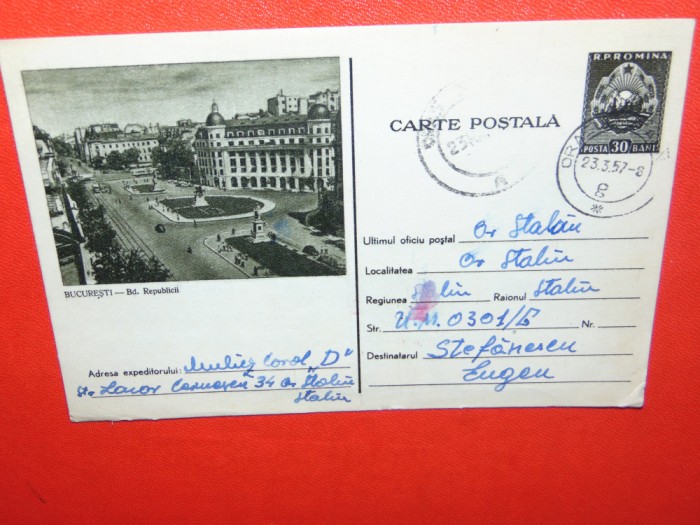 BUCUREȘTI — Bd. Republicii
Adresa expeditorului: Carol "D"
34 Or. Stalin
Stalin
CARTE POȘTALĂ
R.P.ROMINA
POSTA 30 BANI
23.3.57-8
Ultimul oficiu poștal Or Stalin
Localitatea Or Stalin
Regiunea Stalin Raionul Stalin
Str. U.M. 0301/B Nr.
Destinatarul Ștefănescu
Eugen